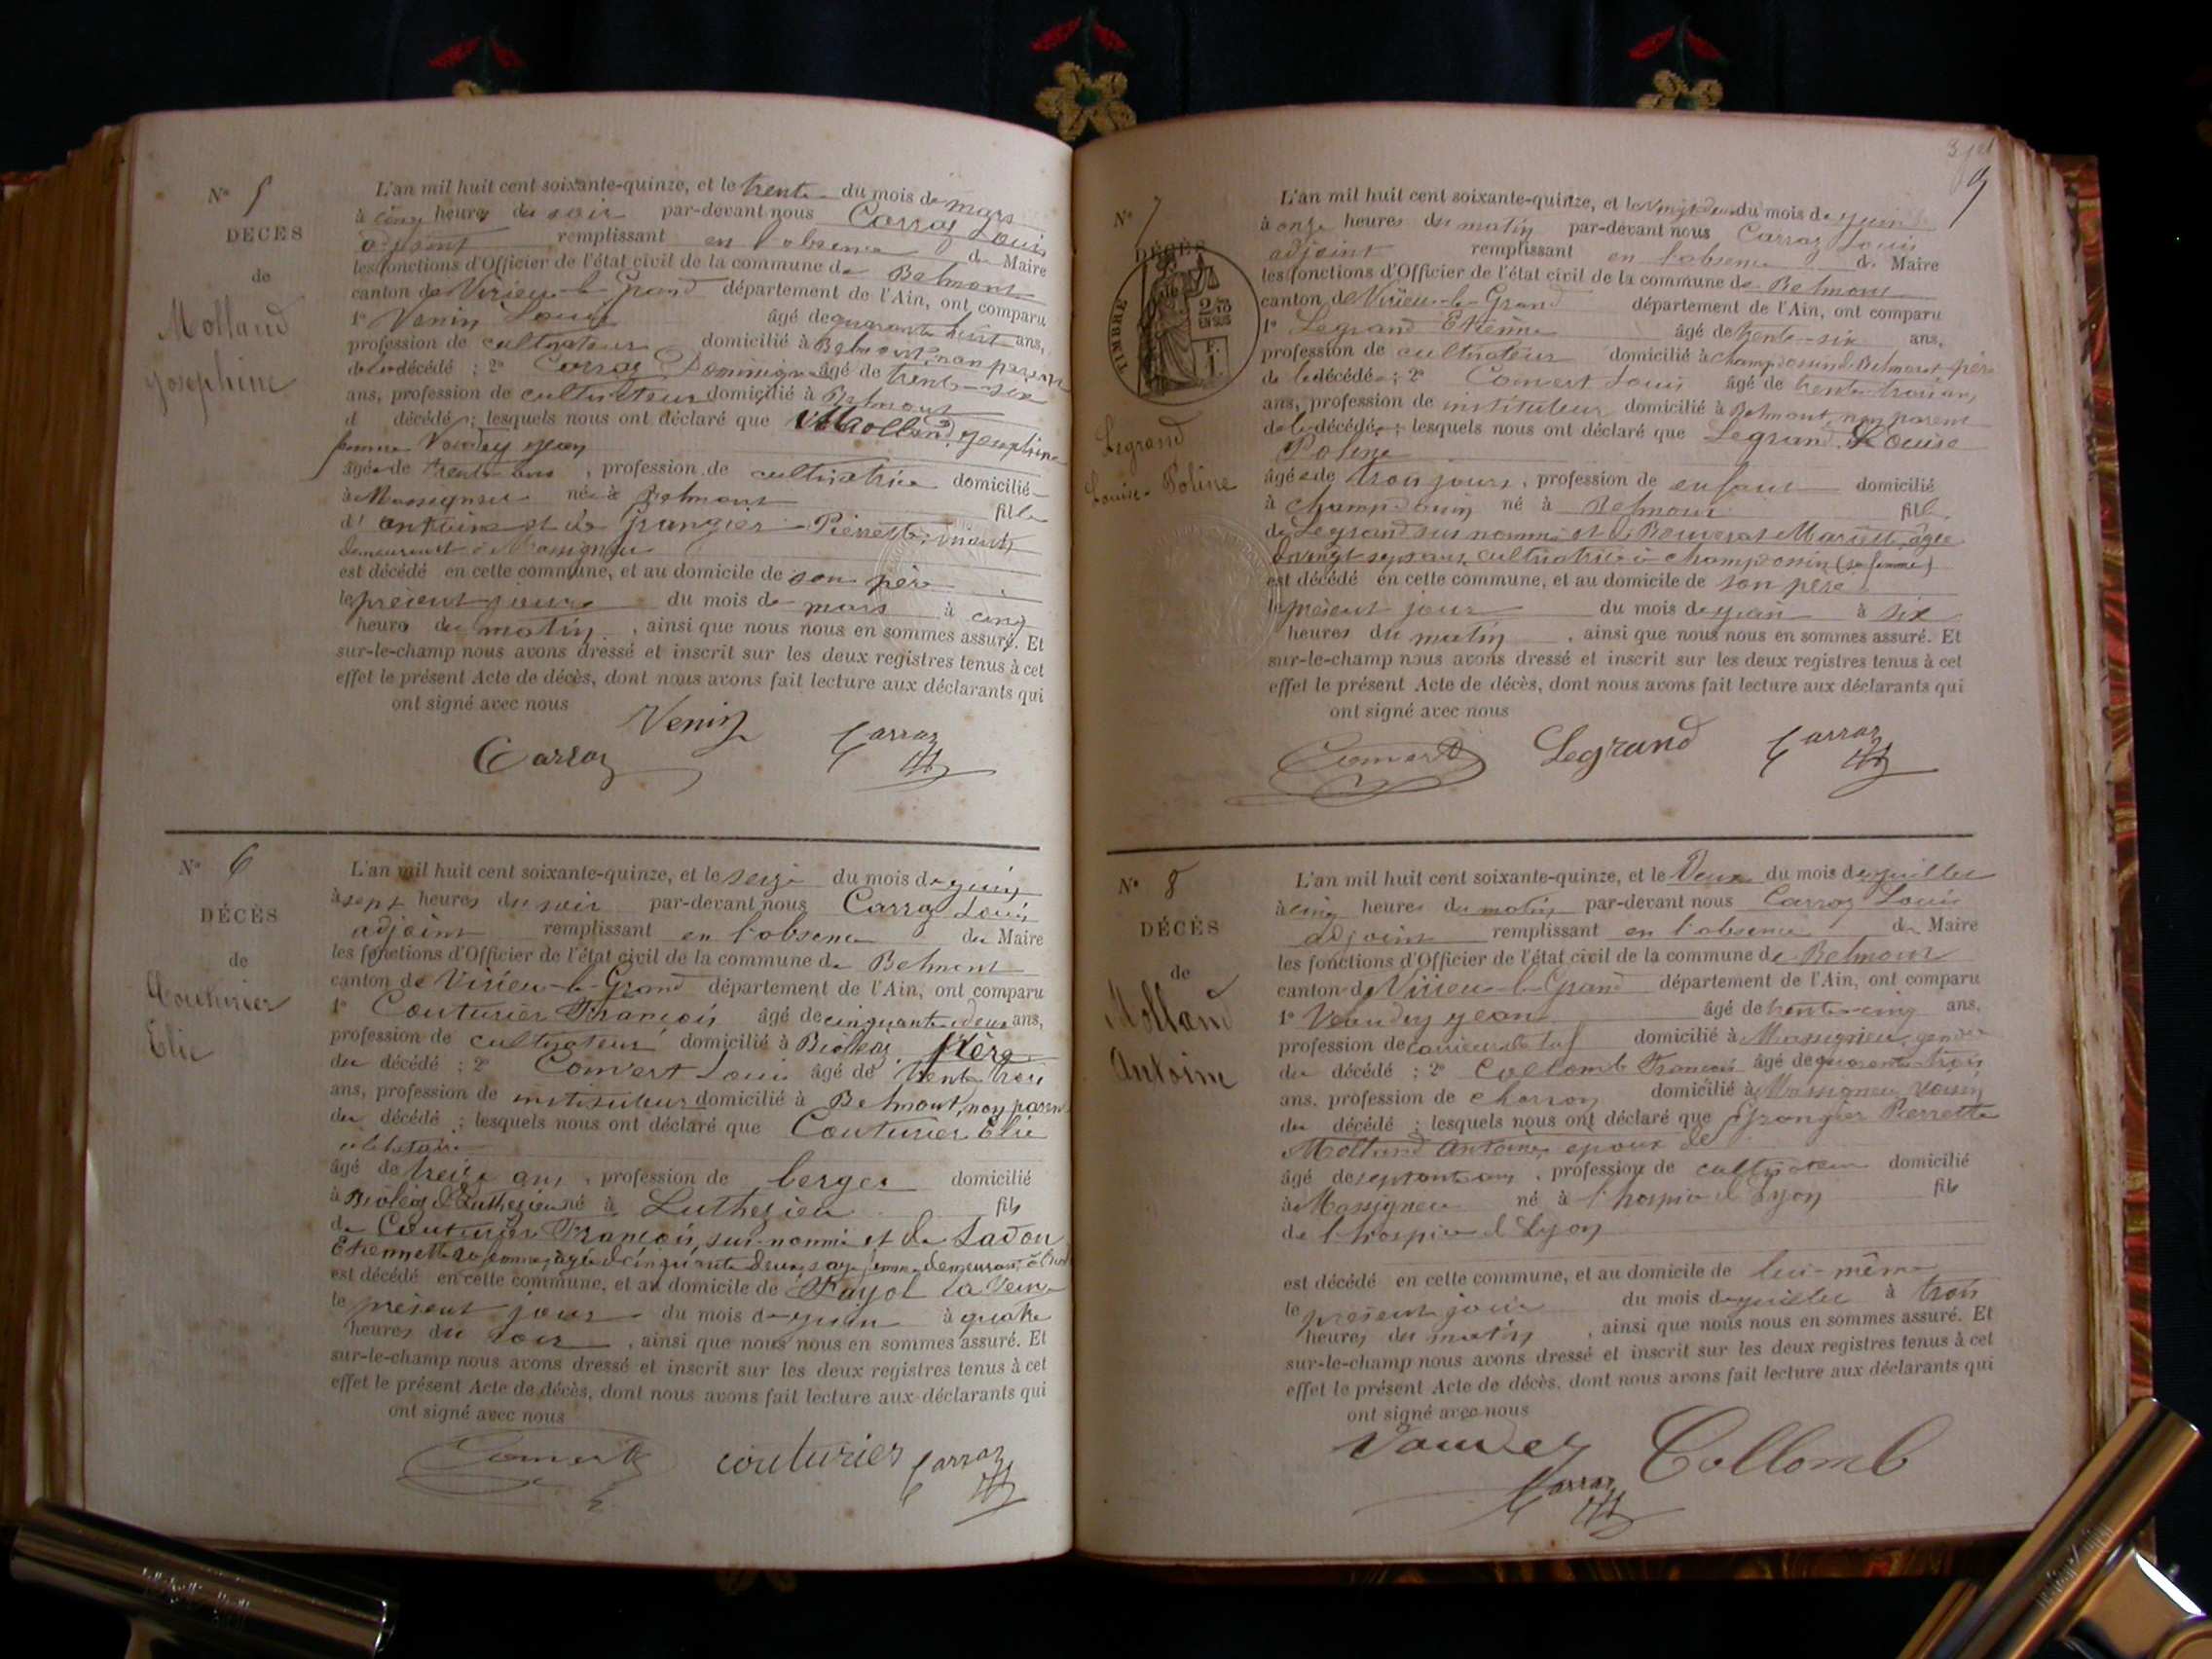 N° 5
DÉCÈS
de
Molland
Josephine
L'an mil huit cent soixante-quinze, et le trente du mois de mars
à cinq heures du soir par-devant nous Carraz Louis
adjoint remplissant en l'absence du Maire
les fonctions d'Officier de l'état civil de la commune de Belmont
canton de Virieu-le-Grand département de l'Ain, ont comparu
1° Venin Louis âgé de quarante huit ans,
profession de cultivateur domicilié à Belmont, non parent
de la décédé ; 2° Carraz Dominique âgé de trente-six
ans, profession de cultivateur domicilié à Belmont
d décédé ; lesquels nous ont déclaré que Molland Josephine
femme Vaudey Jean
âgée de trente ans, profession de cultivatrice domicilié
à Massignieu née à Belmont fille
d' Antoine et de Grangier Pierrette, vivants
demeurant à Massignieu
est décédé en cette commune, et au domicile de son père
le présent jour du mois de mars à cinq
heure du matin, ainsi que nous nous en sommes assuré. Et
sur-le-champ nous avons dressé et inscrit sur les deux registres tenus à cet
effet le présent Acte de décès, dont nous avons fait lecture aux déclarants qui
ont signé avec nous
Venin
Carraz
Carraz
N° 6
DÉCÈS
de
Couturier
Elie
L'an mil huit cent soixante-quinze, et le seize du mois de juin
à sept heures du soir par-devant nous Carraz Louis
adjoint remplissant en l'absence du Maire
les fonctions d'Officier de l'état civil de la commune de Belmont
canton de Virieu-le-Grand département de l'Ain, ont comparu
1° Couturier François âgé de cinquante deux ans,
profession de cultivateur domicilié à Bioleaz, Père
du décédé ; 2° Convert Louis âgé de trente trois
ans, profession de instituteur domicilié à Belmont, non parent
du décédé ; lesquels nous ont déclaré que Couturier Elie
célibataire
âgé de treize ans, profession de berger domicilié
à Bioléaz d Luthézieu né à Luthézieu fils
de Couturier François, sus-nommé et de Ladou
Etiennette sa femme, âgée d cinquante deux
est décédé en cette commune, et au domicile de Fayol la Veuve
le présent jour du mois de juin à quatre
heures du soir, ainsi que nous nous en sommes assuré. Et
sur-le-champ nous avons dressé et inscrit sur les deux registres tenus à cet
effet le présent Acte de décès, dont nous avons fait lecture aux déclarants qui
ont signé avec nous
Convert
couturier
Carraz
9
N° 7
DÉCÈS
de
TIMBRE
2/10
EN SUS
Legrand
Louise-Poline
L'an mil huit cent soixante-quinze, et le vingt deux du mois de juin
à onze heures du matin par-devant nous Carraz Louis
adjoint remplissant en l'absence du Maire
les fonctions d'Officier de l'état civil de la commune de Belmont
canton de Virieu-le-Grand département de l'Ain, ont comparu
1° Legrand Etienne âgé de trente-six ans,
profession de cultivateur domicilié à Champdossin d Belmont père
de la décédée ; 2° Convert Louis âgé de trente trois ans,
ans, profession de instituteur domicilié à Belmont, non parent
de la décédée ; lesquels nous ont déclaré que Legrand Louise
Poline
âgée de trois jours, profession de enfant domicilié
à Champdossin né à Belmont fille
de Legrand sus nommé et d Beuverat Mariette, âgée
de vingt sept ans, cultivatrice à Champdossin (sa femme)
est décédé en cette commune, et au domicile de son père
le présent jour du mois de juin à six
heures du matin, ainsi que nous nous en sommes assuré. Et
sur-le-champ nous avons dressé et inscrit sur les deux registres tenus à cet
effet le présent Acte de décès, dont nous avons fait lecture aux déclarants qui
ont signé avec nous
Convert
Legrand
Carraz
N° 8
DÉCÈS
de
Molland
Antoine
L'an mil huit cent soixante-quinze, et le Deux du mois de juillet
à cinq heures du matin par-devant nous Carraz Louis
adjoint remplissant en l'absence du Maire
les fonctions d'Officier de l'état civil de la commune de Belmont
canton de Virieu-le-Grand département de l'Ain, ont comparu
1° Vaudey Jean âgé de trente-cinq ans,
profession de carrieur de tuf domicilié à Massignieu, gendre
du décédé ; 2° Collomb François âgé de quarante-trois
ans, profession de charron domicilié à Massignieu, voisin
du décédé ; lesquels nous ont déclaré que Grangier Pierrette
Molland Antoine, époux de
âgé de septante ans, profession de cultivateur domicilié
à Massignieu né à l'hospice d Lyon fils
de l'hospice d Lyon
est décédé en cette commune, et au domicile de lui-même
le présent jour du mois de juillet à trois
heures du matin, ainsi que nous nous en sommes assuré. Et
sur-le-champ nous avons dressé et inscrit sur les deux registres tenus à cet
effet le présent Acte de décès, dont nous avons fait lecture aux déclarants qui
ont signé avec nous
Vaudey
Collomb
Carraz